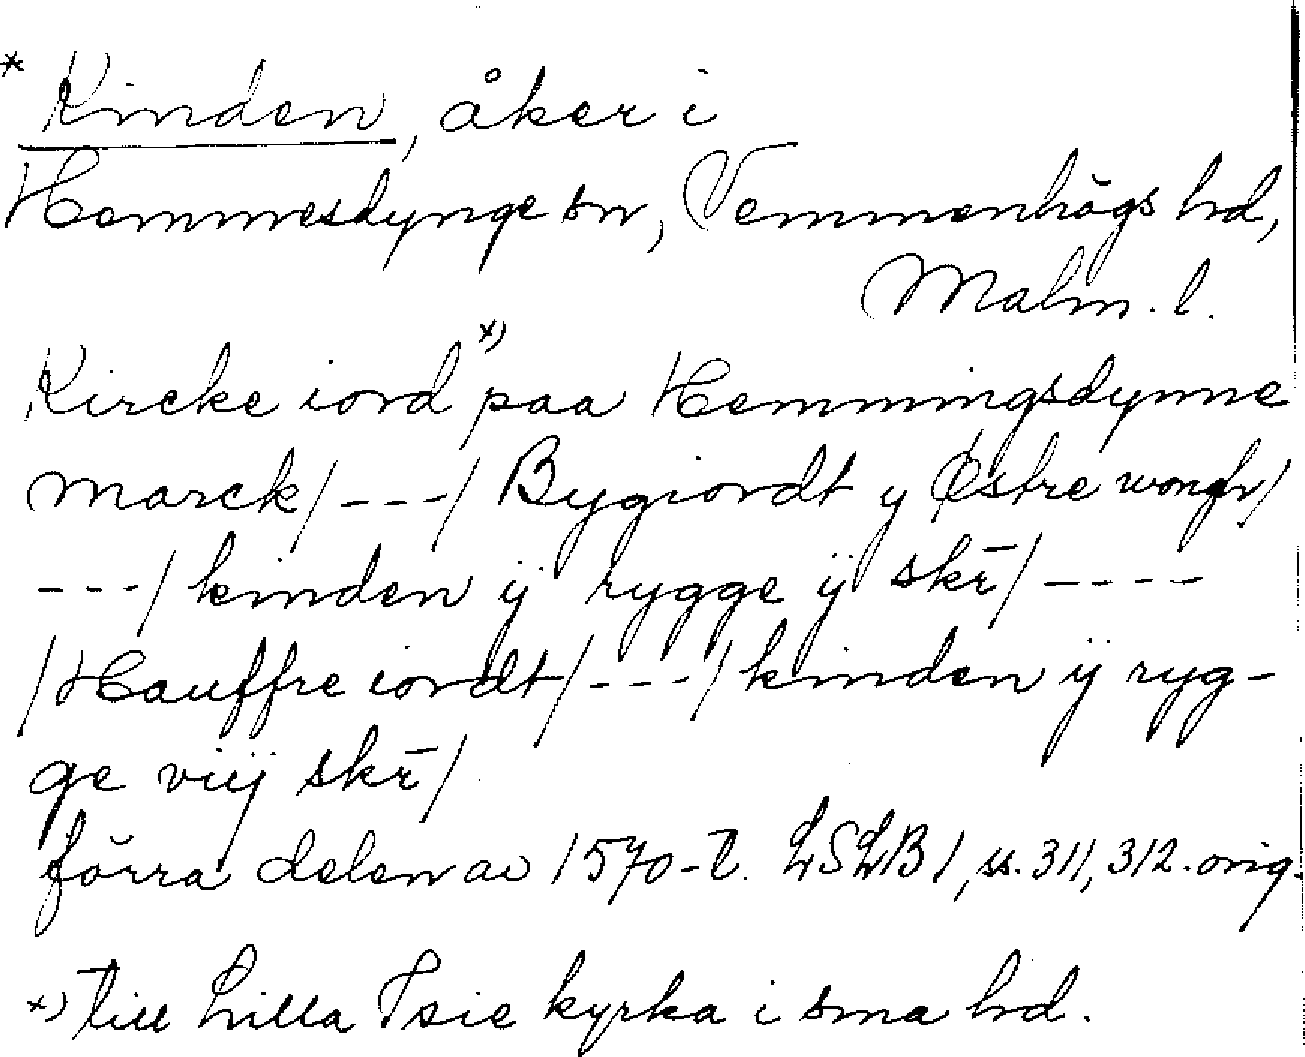 * Kinden, åker i
Hemmesdynge sn, Vemmenhögs hd,
Malm. l.
Kircke iord *) paa Hemmingsdynne
marck/---/ Bygiordt y Østre wongh/
---/ kinden ÿ rygge ÿ skr̄/----
/Hauffre iordt/---/ kinden ÿ ryg-
ge viij skr̄/
förra delen av 1570-t. LSLB 1, ss. 311, 312. orig.
*) Till Lilla Isie kyrka i sma hd.